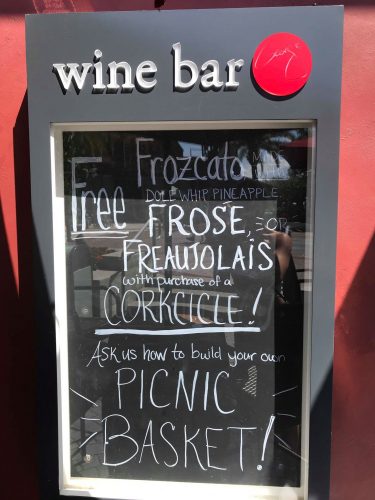 wine bar
Free
Frozcato
DOLE WHIP PINEAPPLE
FROSE, OR
FREAUJOLAIS
with purchase of a
CORKCICLE!
Ask us how to build your own
PICNIC
BASKET!